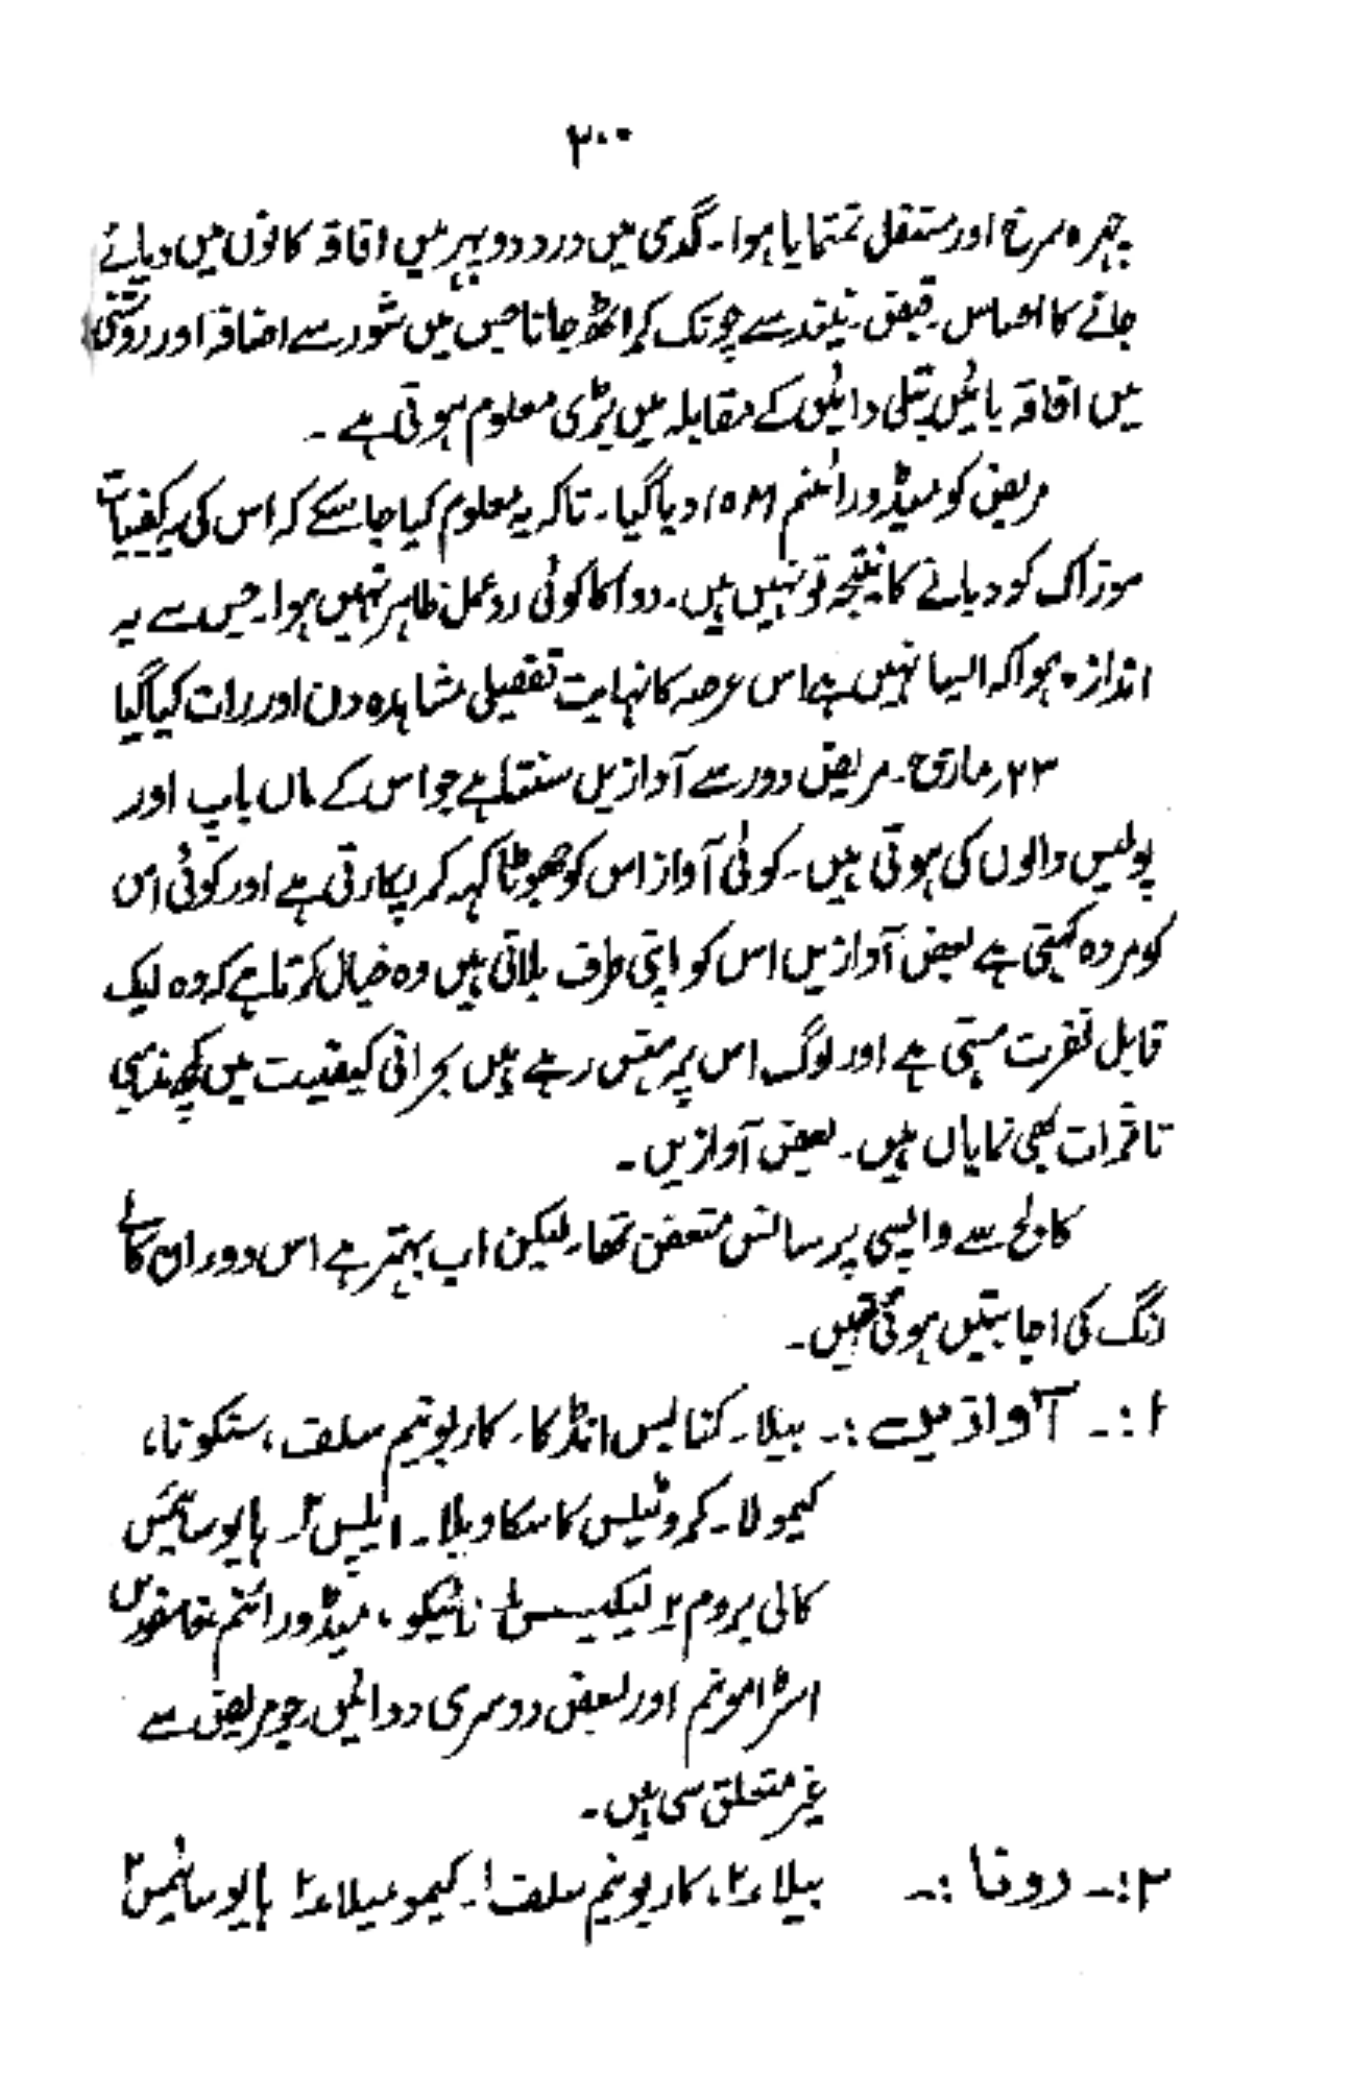 ۲۰۰
چہرہ سرخ اور مستقل تمتمایا ہوا۔ گدی میں درد دوپہر میں افاقہ کانوں میں دبائے
جانے کا احساس۔ قبض۔ نیند سے چونک کر اٹھ جانا جس میں شور سے اضافہ اور روشنی
میں افاقہ بائیں پتلی دائیں کے مقابلہ میں بڑی معلوم ہوتی ہے ۔
مریض کو میڈورائنم 10M دیا گیا۔ تاکہ یہ معلوم کیا جا سکے کہ اس کی یہ کیفیات
سوزاک کو دبانے کا نتیجہ تو نہیں ہیں۔ دوا کا کوئی ردعمل ظاہر نہیں ہوا۔ جس سے یہ
اندازہ ہوا کہ ایسا نہیں ہے اس عرصہ کا نہایت تفصیلی مشاہدہ دن اور رات کیا گیا
۲۳ر مارچ۔ مریض دور سے آوازیں سنتا ہے جو اس کے ماں باپ اور
پولیس والوں کی ہوتی ہیں۔ کوئی آواز اس کو جھوٹا کہہ کر پکارتی ہے اور کوئی اس
کو مردہ کہتی ہے بعض آوازیں اس کو اپنی طرف بلاتی ہیں وہ خیال کرتا ہے کہ وہ ایک
قابل نفرت ہستی ہے اور لوگ اس پر ہنس رہے ہیں بحرانی کیفیت میں کچھ مذہبی
تاثرات بھی نمایاں ہیں۔ بعض آوازیں ۔
کالج سے واپسی پر سانس متعفن تھا۔ لیکن اب بہتر ہے اس دوران کالے
رنگ کی اجابتیں ہوئی تھیں۔
۱ :۔ آوازیں :۔ بیلا۔ کنابس انڈکا۔ کاربونیم سلف ، سنکونا،
کیمولا۔ کروٹیلس کاسکاویلا۔ ایپس ۲ ہایوسائمس
کالی بروم ۲ لیکیسس نائیکو ، میڈورائنم فاسفورس
اسٹرامونیم اور بعض دوسری دوائیں جو مریض سے
غیر متعلق سی ہیں۔
۲ :۔ رونا :۔ بیلا ۲، کاربونیم سلف ۱۔ کیمومیلا ۲ ہایوسائمس ۲